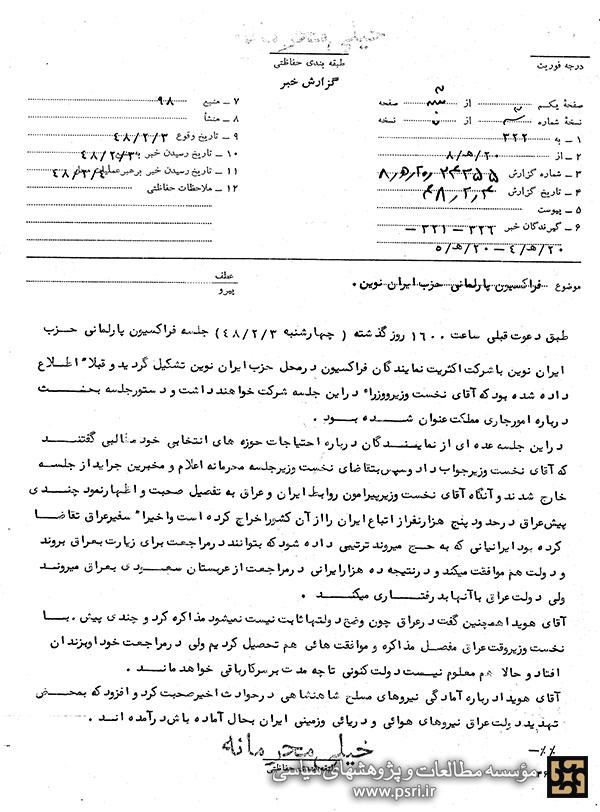 طبقه بندی حفاظتی
گزارش خبر
درجه فوریت
صفحهٔ یکم از صفحه
نسخهٔ شماره از نسخه
۱ – به ۳۲۲
۲ – از ۲۰/هـ/۸
۳ – شمارهٔ گزارش ۲۴۳۵۵/۲۰هـ۸
۴ – تاریخ گزارش ۴۸/۲/۴
۵ – پیوست
۶ – گیرندگان خبر ۳۲۶ – ۳۲۱ –
۲۰/هـ/۴ – ۲۰/هـ/۵
۷ – منبع ۹۸
۸ – منشأ
۹ – تاریخ وقوع ۴۸/۲/۳
۱۰ – تاریخ رسیدن خبر به ۴۸/۲/۳
۱۱ – تاریخ رسیدن خبر برهبر عملیات ۴۸/۲/۴
۱۲ – ملاحظات حفاظتی
موضوع فراکسیون پارلمانی حزب ایران نوین .
عطف
پیرو
طبق دعوت قبلی ساعت ۱۶۰۰ روز گذشته ( چهارشنبه ۴۸/۲/۳) جلسه فراکسیون پارلمانی حزب
ایران نوین با شرکت اکثریت نمایندگان فراکسیون در محل حزب ایران نوین تشکیل گردید و قبلا" اطلاع
داده شده بود که آقای نخست وزیر و وزراء در این جلسه شرکت خواهند داشت و دستور جلسه بحث
درباره امور جاری مملکت عنوان شده بود .
در این جلسه عده ای از نمایندگان درباره احتیاجات حوزه های انتخابی خود مطالبی گفتند
که آقای نخست وزیر جواب داد و سپس بتقاضای نخست وزیر جلسه محرمانه اعلام و مخبرین جراید از جلسه
خارج شدند و آنگاه آقای نخست وزیر پیرامون روابط ایران و عراق به تفصیل صحبت و اظهار نمود چندی
پیش عراق در حدود پنج هزار نفر از اتباع ایران را از آن کشور اخراج کرده است و اخیرا" سفیر عراق تقاضا
کرده بود ایرانیانی که به حج میروند ترتیبی داده شود که بتوانند در مراجعت برای زیارت بعراق بروند
و دولت هم موافقت میکند و در نتیجه ده هزار ایرانی در مراجعت از عربستان سعودی بعراق میروند
ولی دولت عراق با آنها بد رفتاری میکند .
آقای هویدا همچنین گفت در عراق چون وضع دولتها ثابت نیست نمیشود مذاکره کرد و چندی پیش . با
نخست وزیر وقت عراق مفصل مذاکره و موافقت هائی هم تحصیل کردیم ولی در مراجعت خود او بزندان
افتاد و حالا هم معلوم نیست دولت کنونی تا چه مدت بر سر کار باقی خواهد ماند .
آقای هویدا درباره آمادگی نیروهای مسلح شاهنشاهی در حوادث اخیر صحبت کرد و افزود که بمحض
تهدید دولت عراق نیروهای هوائی و دریائی و زمینی ایران بحال آماده باش درآمده اند .
خیلی محرمانه
مؤسسه مطالعات و پژوهشهای سیاسی
www.psri.ir